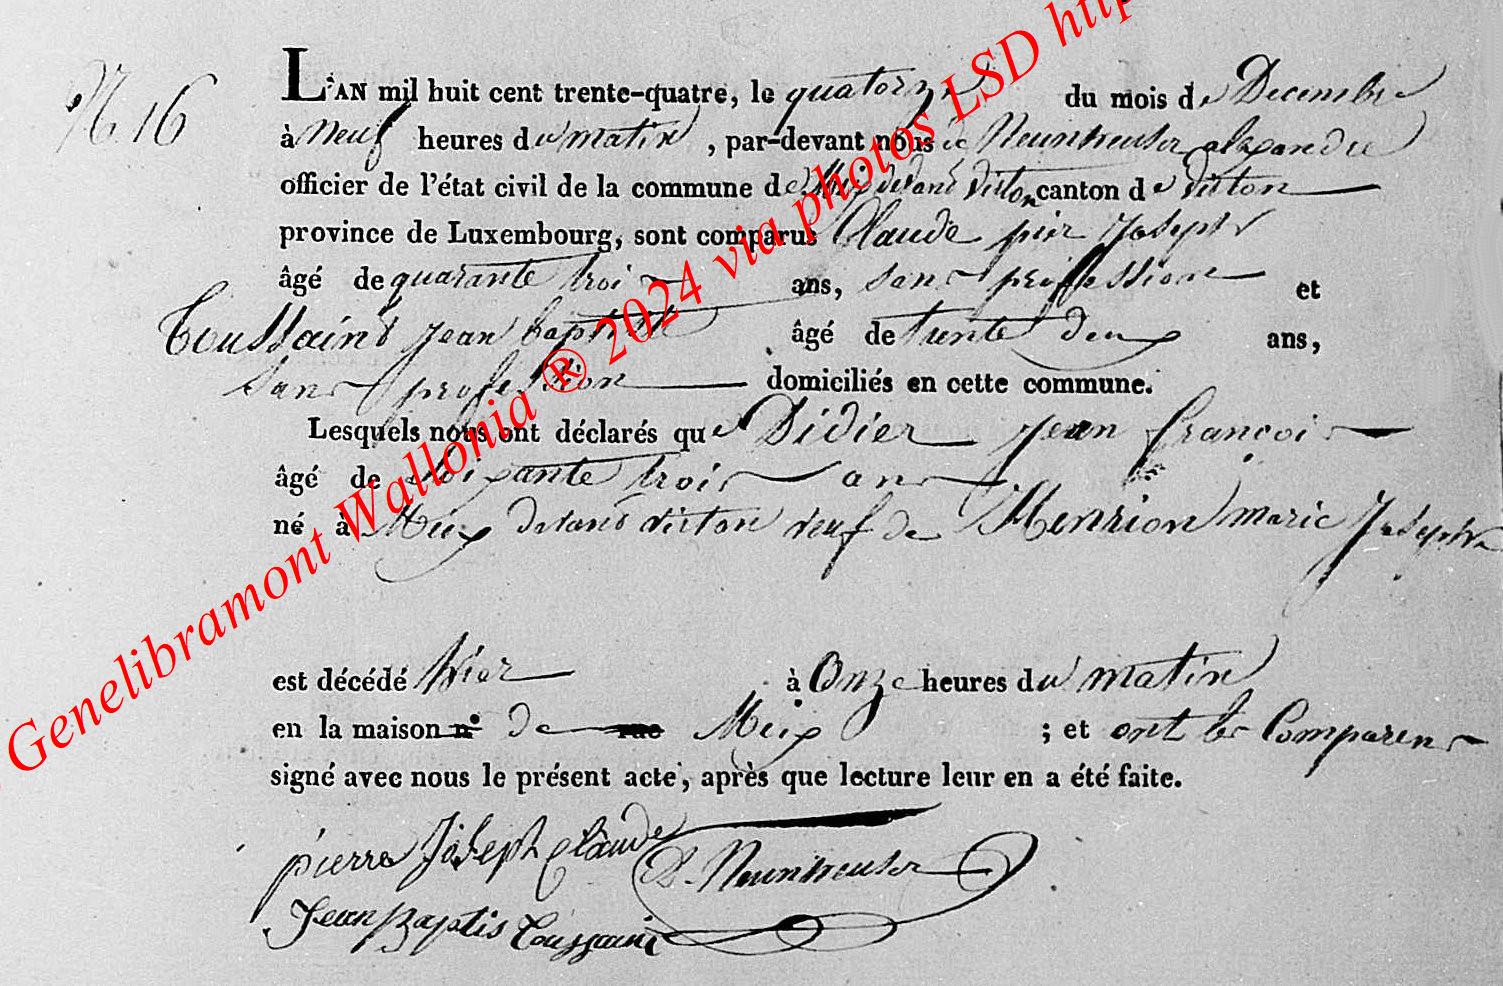 N. 16
L'AN mil huit cent trente-quatre, le quatorze du mois de Decembre
à neuf heures du matin, par-devant nous de Neunheuser alexandre
officier de l'état civil de la commune de Meix devant virton canton de virton
province de Luxembourg, sont comparus Claude pier Joseph
âgé de quarante trois ans, sans proffession et
Toussaint jean baptiste âgé de trente deux ans,
sans profession domiciliés en cette commune.
Lesquels nous ont déclarés que Didier jean francois
âgé de soixante trois ans
né à Meix devant virton veuf de Henrion marie Joseph
est décédé hier à Onze heures du matin
en la maison n° de rue Meix ; et ont les Comparens
signé avec nous le présent acte, après que lecture leur en a été faite.
pierre Joseph Claude
Neunheuser
Jean Baptis Toussaint
Genelibramont Wallonia ® 2024 via photos LSD http